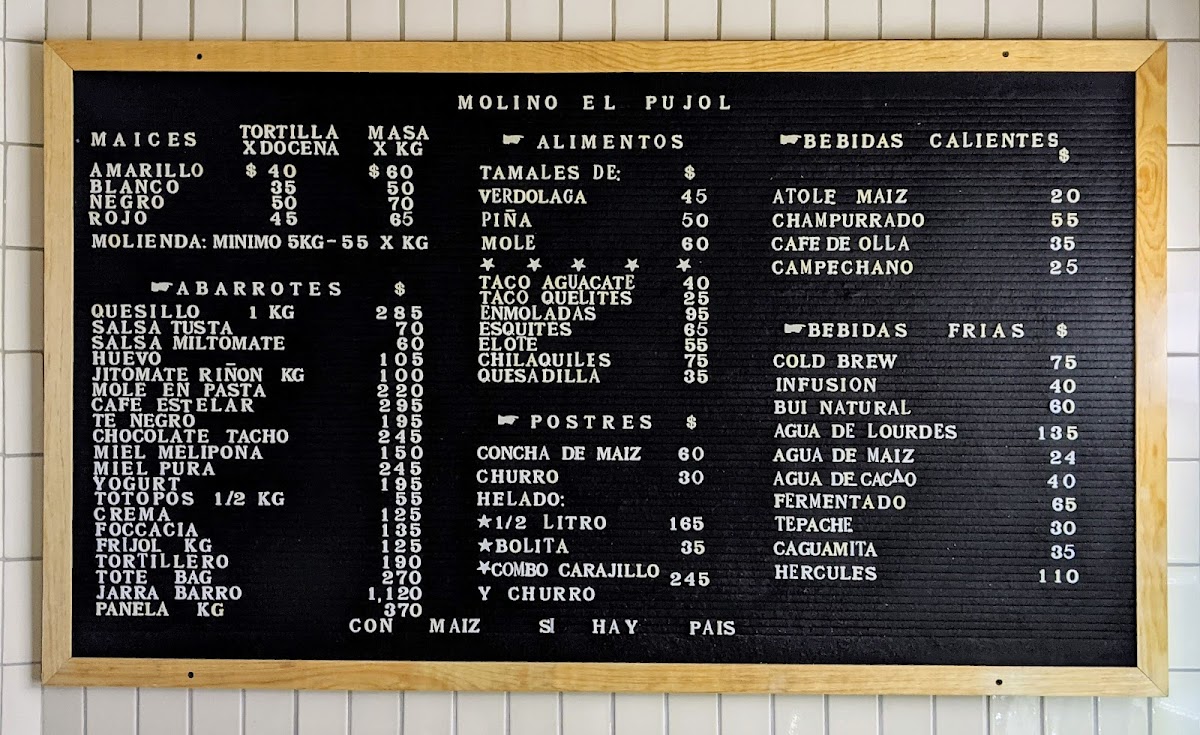 MOLINO EL PUJOL
MAICES TORTILLA X DOCENA MASA X KG
AMARILLO $ 40 $ 60
BLANCO 35 50
NEGRO 50 70
ROJO 45 65
MOLIENDA: MINIMO 5KG-55 X KG
ABARROTES $
QUESILLO 1 KG 285
SALSA TUSTA 70
SALSA MILTOMATE 60
HUEVO 105
JITOMATE RIÑON KG 100
MOLE EN PASTA 220
CAFE ESTELAR 295
TE NEGRO 195
CHOCOLATE TACHO 245
MIEL MELIPONA 150
MIEL PURA 245
YOGURT 195
TOTOPOS 1/2 KG 55
CREMA 125
FOCCACIA 135
FRIJOL KG 125
TORTILLERO 190
TOTE BAG 270
JARRA BARRO 1,120
PANELA KG 370
ALIMENTOS
TAMALES DE: $
VERDOLAGA 45
PIÑA 50
MOLE 60
★ ★ ★ ★ ★
TACO AGUACATE 40
TACO QUELITES 25
ENMOLADAS 95
ESQUITES 65
ELOTE 55
CHILAQUILES 75
QUESADILLA 35
POSTRES $
CONCHA DE MAIZ 60
CHURRO 30
HELADO:
★1/2 LITRO 165
★BOLITA 35
★COMBO CARAJILLO 245
Y CHURRO
BEBIDAS CALIENTES
$
ATOLE MAIZ 20
CHAMPURRADO 55
CAFE DE OLLA 35
CAMPECHANO 25
BEBIDAS FRIAS $
COLD BREW 75
INFUSION 40
BUI NATURAL 60
AGUA DE LOURDES 135
AGUA DE MAIZ 24
AGUA DE CACAO 40
FERMENTADO 65
TEPACHE 30
CAGUAMITA 35
HERCULES 110
CON MAIZ SI HAY PAIS